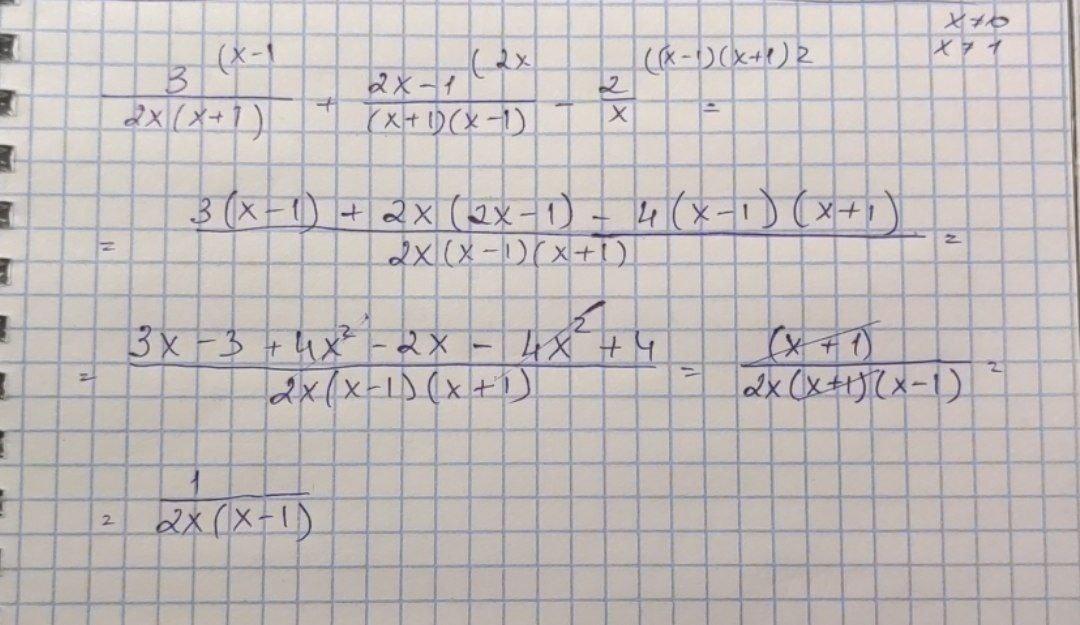 x ≠ 0
x ≠ 1
3 (x-1 / 2x(x+1) + 2x-1 (2x / (x+1)(x-1) - 2 ((x-1)(x+1)2 / x =
= 3(x-1) + 2x(2x-1) - 4(x-1)(x+1) / 2x(x-1)(x+1) =
= 3x-3+4x²-2x-4x²+4 / 2x(x-1)(x+1) = (x+1) / 2x(x+1)(x-1) =
= 1 / 2x(x-1)